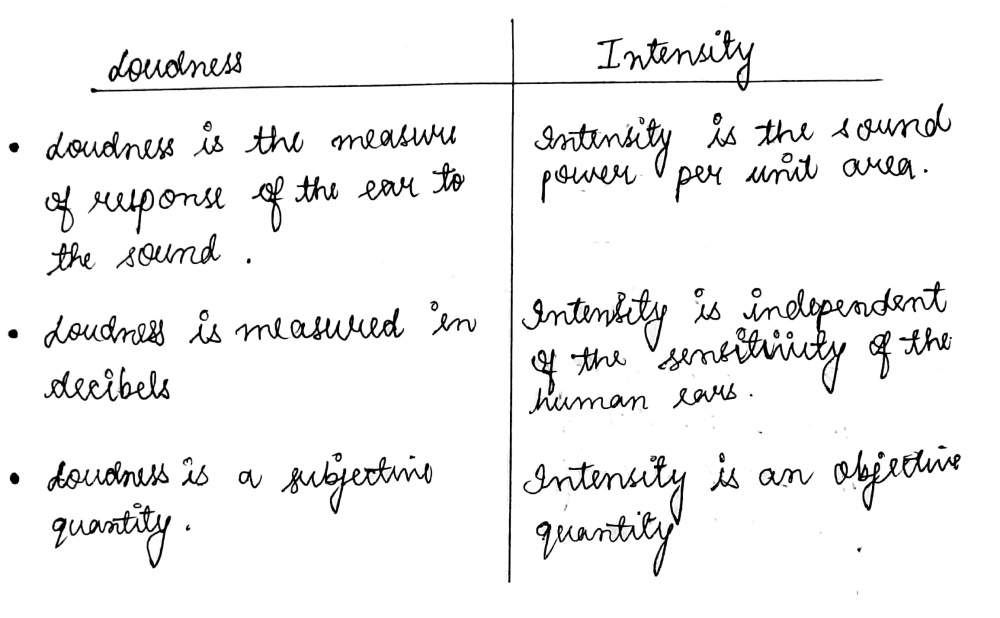 Loudness
Intensity
• Loudness is the measure
of response of the ear to
the sound.
Intensity is the sound
power per unit area.
• Loudness is measured in
decibels
Intensity is independent
of the sensitivity of the
human ears.
• Loudness is a subjective
quantity.
Intensity is an objective
quantity.